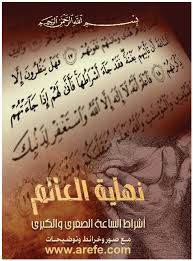 بسم الله الرحمن الرحيم
فهل ينظرون إلا
الساعة أن تأتيهم بغتة فقد جاء أشراطها فأنى لهم إذا جاءتهم
إله إلا الله واستغفر لذنبك
نهاية العالم
أشراط الساعة الصغرى والكبرى
مع صور وخرائط وتوضيحات
www.arefe.com